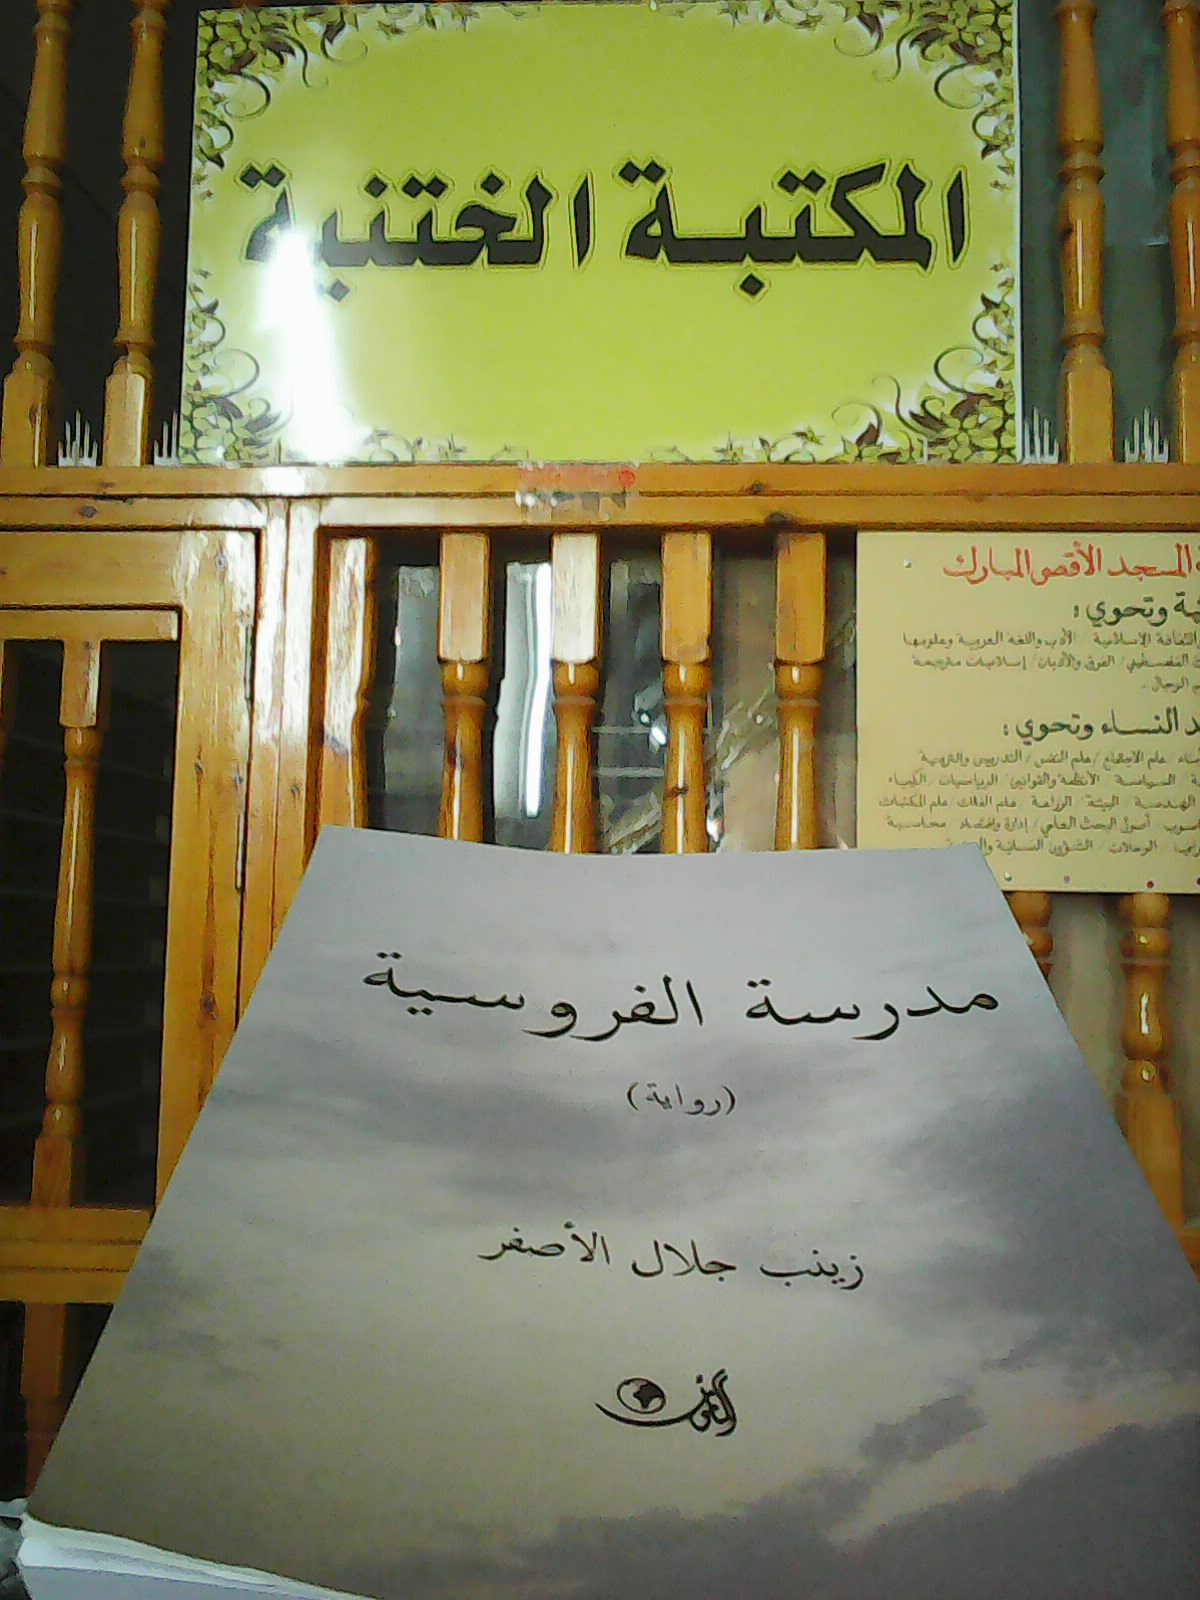 المكتبة الختنية
المسجد الأقصى المبارك
وتحوي :
والثقافة الإسلامية / الأدب واللغة العربية وعلومها
الفلسطيني / الفرق والأديان / إسلاميات مترجمة
الرجال .
النساء وتحوي :
علم الاجتماع / علم النفس / التدريس والتربية
السياسة / الأنظمة والقوانين / الرياضيات / الكيمياء
الهندسة / البيئة / الزراعة / علم الفلك / علم المكتبات
أصول البحث العلمي / إدارة واقتصاد / محاسبة
الرحلات / الشؤون النسائية
مدرسة الفروسية
(رواية)
زينب جلال الأصفر